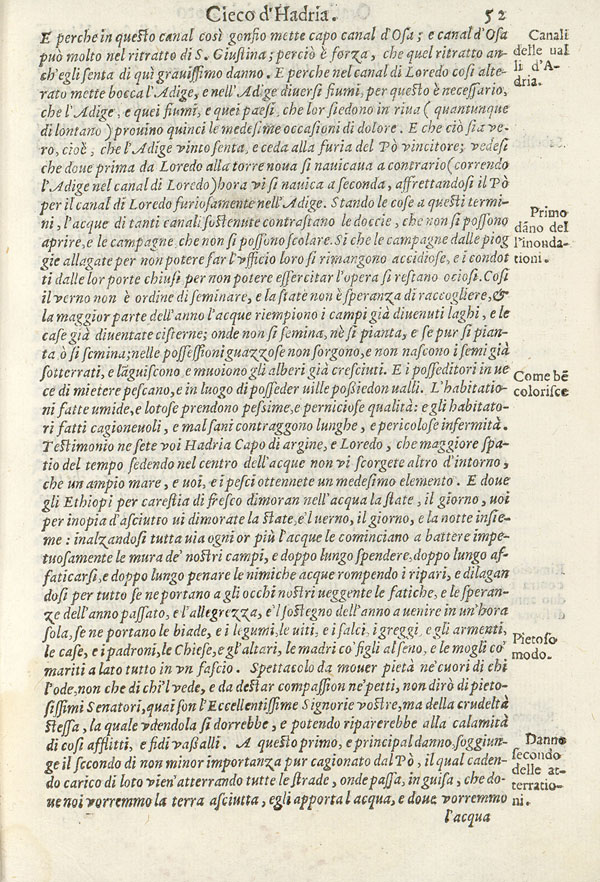 Cieco d'Hadria. 52
E perche in questo canal così gonfio mette capo canal d'Osa; e canal d'Osa
può molto nel ritratto di S. Giustina; perciò è forza, che quel ritratto an-
ch'egli senta di quì grauissimo danno. E perche nel canal di Loredo così alte-
rato mette bocca l'Adige, e nell'Adige diuersi fiumi, per questo è necessario,
che l'Adige, e quei fiumi, e quei paesi, che lor siedono in riua (quantunque
di lontano) prouino quinci le medesime occasioni di dolore. E che ciò sia ve-
ro, cioè, che l'Adige vinto senta, e ceda alla furia del Pò vincitore; vedesi
che doue prima da Loredo alla torre noua si nauicaua a contrario (correndo
l'Adige nel canal di Loredo) hora vi si nauica a seconda, affrettandosi il Pò
per il canal di Loredo furiosamente nell'Adige. Stando le cose a questi termi-
ni, l'acque di tanti canali sostenute contrastano le doccie, che non si possono
aprire, e le campagne, che non si possono scolare. Sì che le campagne dalle piog
gie allagate per non potere far l'vfficio loro si rimangono accidiose, e i condot
ti dalle lor porte chiusi per non potere essercitar l'opera si restano ociosi. Così
il verno non è ordine di seminare, e la state non è speranza di raccogliere, &
la maggior parte dell'anno l'acque riempiono i campi già diuenuti laghi, e le
case già diuentate cisterne; onde non si semina, nè si pianta, e se pur si pian-
ta, ò si semina; nelle possessioni guazzose non sorgono, e non nascono i semi già
sotterrati, e lãguiscono, e muoiono gli alberi già cresciuti. E i posseditori in ue
ce di mietere pescano, e in luogo di posseder uille possiedon ualli. L'habitatio-
ni fatte umide, e lotose prendono pessime, e perniciose qualità: e gli habitato-
ri fatti cagioneuoli, e mal sani contraggono lunghe, e pericolose infermità.
Testimonio ne sete voi Hadria Capo di argine, e Loredo, che maggiore spa-
tio del tempo sedendo nel centro dell'acque non vi scorgete altro d'intorno,
che un ampio mare, e uoi, e i pesci ottennete un medesimo elemento. E doue
gli Ethiopi per carestia di fresco dimoran nell'acqua la state, il giorno, uoi
per inopia d'asciutro ui dimorate la state, e'l uerno, il giorno, e la notte insie-
me: inalzandosi tutta uia ogni or più l'acque le cominciano a battere impe-
tuosamente le mura de' nostri campi, e doppo lungo spendere, doppo lungo af-
faticarsi, e doppo lungo penare le nimiche acque rompendo i ripari, e dilagan
dosi per tutto se ne portano a gli occhi nostri ueggente le fatiche, e le speran-
ze dell'anno passato, e l'allegrezza, e'l sostegno dell'anno a uenire in un'hora
sola, se ne portano le biade, e i legumi, le uiti, e i salci, i greggi, e gli armenti,
le case, e i padroni, le Chiese, e gl'altari, le madri co' figli al seno, e le mogli co'
mariti a lato tutto in vn fascio. Spettacolo da mouer pietà ne' cuori di chi
l'ode, non che di chi'l vede, e da destar compassion ne' petti, non dirò di pieto-
sissimi Senatori, quai son l'Eccellentissime Signorie vostre, ma della crudeltà
stessa, la quale vdendola si dorrebbe, e potendo riparerebbe alla calamità
di così afflitti, e fidi vassalli. A questo primo, e principal danno, soggiun-
ge il secondo di non minor importanza pur cagionato dal Pò, il qual caden-
do carico di loto vien'atterrando tutte le strade, onde passa, in guisa, che do-
ue noi vorremmo la terra asciutta, egli apporta l'acqua, e doue vorremmo
l'acqua
Canali
delle ual
li d'A-
dria.
Primo
dãno del
l'inonda-
tioni.
Come bẽ
colorisce
Pietoso
modo.
Danno
secondo
delle at-
terratio-
ni.